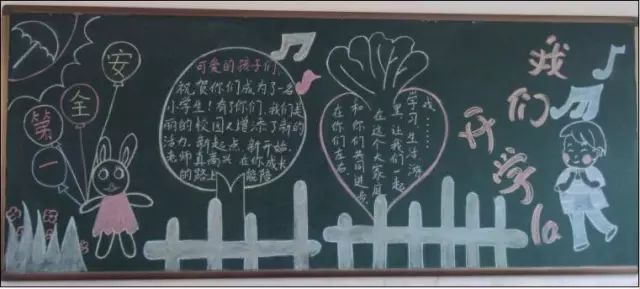 安全第一
可爱的孩子们
祝贺你们成为了一名
小学生!有了你们,我们美
丽的校园又增添了新的
活力。新起点,新开始。
老师真高兴 在你成长
的路上 能陪
我……
学习生活游
里,让我们一起
在这个大家庭
和你们共同进步
在你们左右
我们
开学la